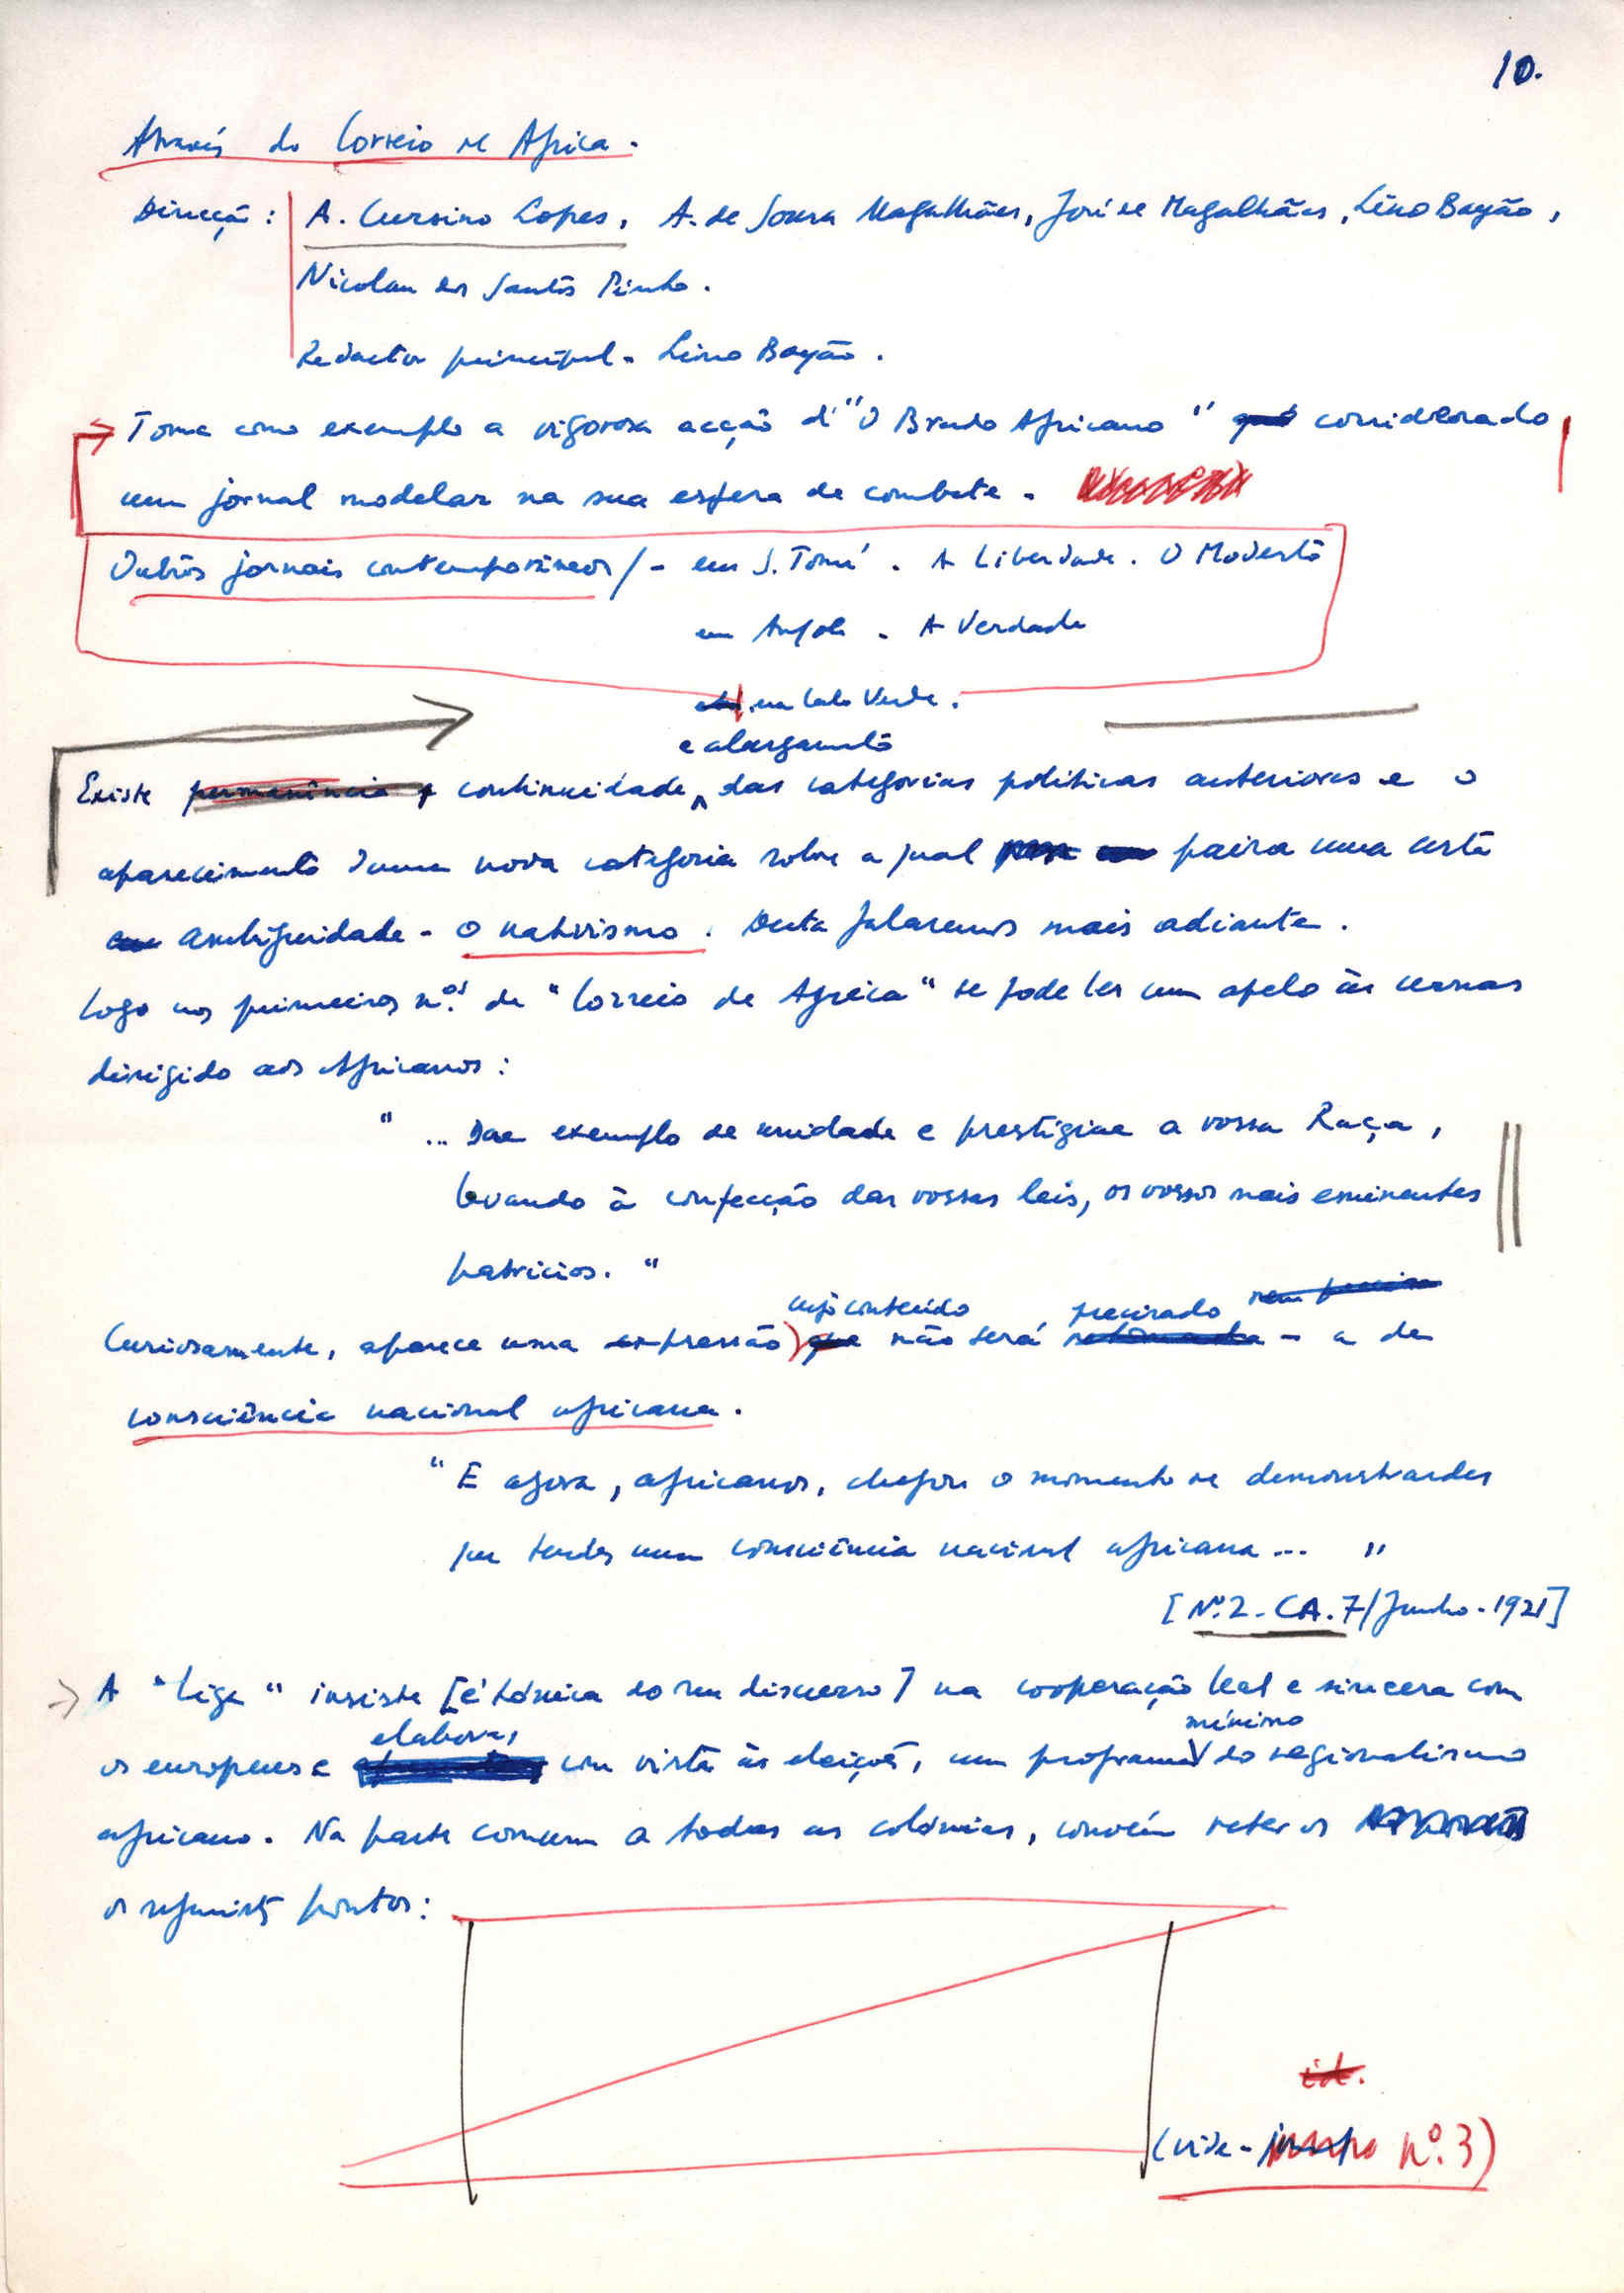 10.
Através do Correio de Africa.
Direcção: A. Cursino Lopes, A. de Sousa Magalhães, José de Magalhães, Lino Bayão,
Nicolau dos Santos Pinho.
Redactor principal - Lino Bayão.
Toma como exemplo a vigorosa acção d' "O Brado Africano" considerado
um jornal modelar na sua esfera de combate.
Outros jornais contemporâneos / - em S. Tomé. A Liberdade. O Modesto
em Angola - A Verdade
em Cabo Verde.
e alargamento
Existe permanência e continuidade das categorias politicas anteriores e o
aparecimento duma nova categoria sobre a qual paira uma certa
ambiguidade - o nativismo. Desta falaremos mais adiante.
Logo nos primeiros nºs de "Correio de Africa" se pode ler um apelo às urnas
dirigido aos Africanos:
"... Dae exemplo de unidade e prestigiae a vossa Raça,
levando à confecção das vossas leis, os vossos mais eminentes
patricios."
cujo conteúdo precisado
Curiosamente, aparece uma expressão que não será - a de
consciência nacional africana.
"E agora, africanos, chegou o momento de demonstrardes
que tendes uma consciência nacional africana... "
[Nº.2 - CA. 7/Junho - 1921]
A "Liga" insiste [é tónica do seu discurso] na cooperação leal e sincera com
elabora, mínimo
os europeus e com vista às eleições, um programa do regionalismo
africano. Na parte comum a todas as colónias, convém reter os
os seguintes pontos:
id.
(vide - nº.3)